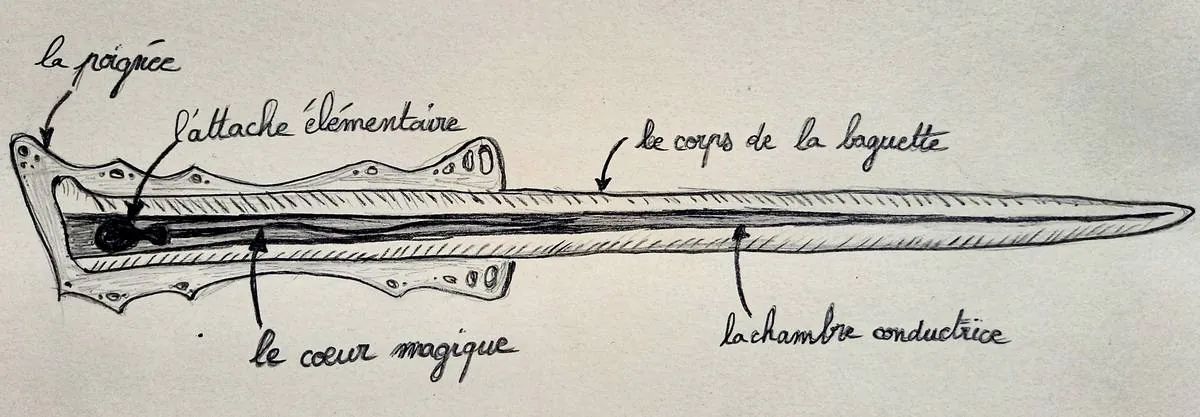 la poignée
l'attache élémentaire
le corps de la baguette
le cœur magique
la chambre conductrice